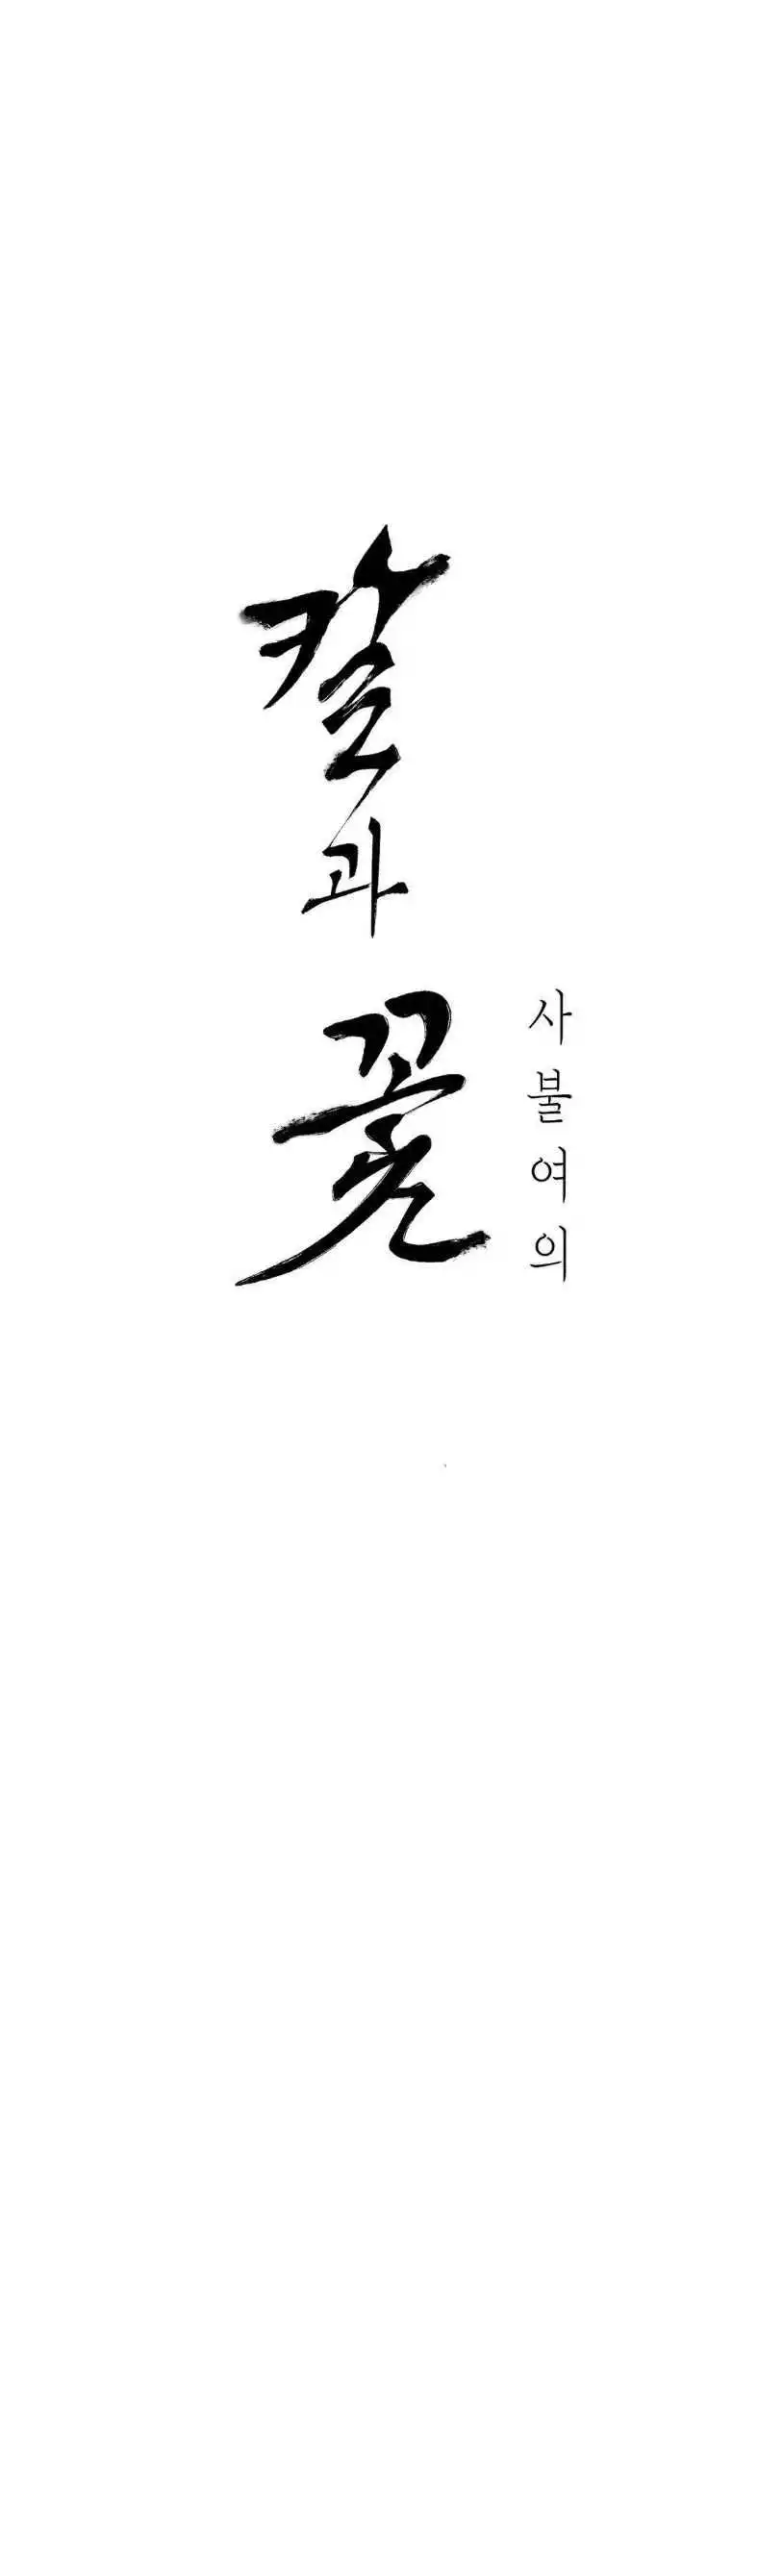 사불여의
칼과
꽃